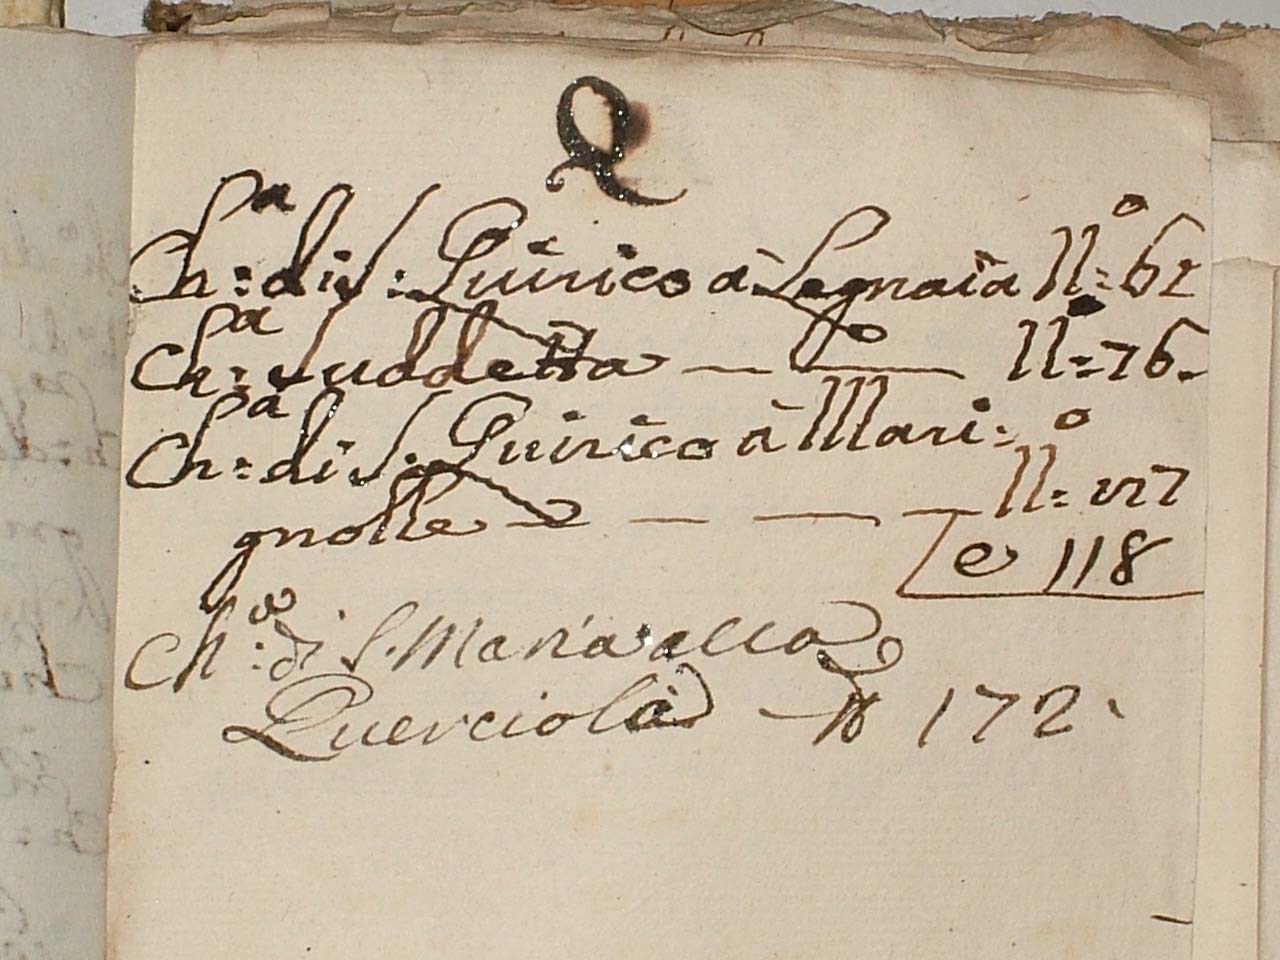 Q
Ch:ª di S: Quirico à Legnaia N:º 62
Ch:ª Suddetta — — N:º 76.
Ch:ª di S. Quirico à Mari:
gnolle — — — — N:º 117
e 118
Ch:ª di S. Maria alla
Querciola — N 172.